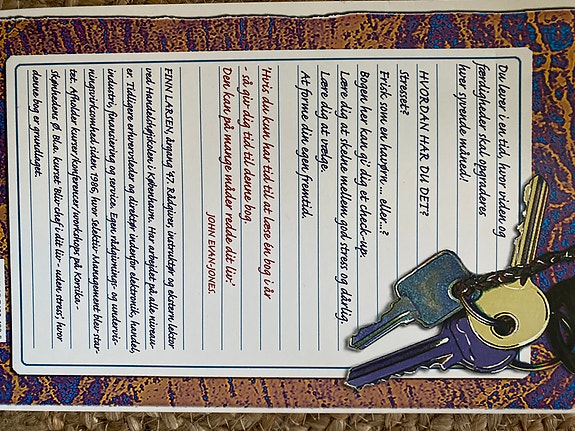 Du lever i en tid, hvor viden og
færdigheder skal opgraderes
hver syvende måned!
HVORDAN HAR DU DET?
Stresset?
Frisk som en havørn... eller...?
Bogen her kan gi' dig et check-up:
Lære dig at skelne mellem god stress og dårlig.
Lære dig at vælge.
At forme din egen fremtid.
"Hvis du kun har tid til at læse én bog i år
- så gør dig tid til denne bog.
Den kan på mange måder redde dit liv".
JOHN EVAN-JONES.
FINN LARSEN, årgang '47. Rådgiver, instruktør og ekstern lektor
ved Handelshøjskolen i København. Har arbejdet på alle niveau-
er. Tidligere erhvervsleder og direktør indenfor elektronik, handel,
industri, finansiering og service. Egen rådgivnings- og undervis-
ningsvirksomhed siden 1986, hvor Selektiv Management blev star-
tet. Afholder kurser/konferencer/workshops på Korsika -
Skønhedens Ø. Bl.a. kurset 'Bliv chef i dit liv - uden stress', hvor
denne bog er grundlaget.